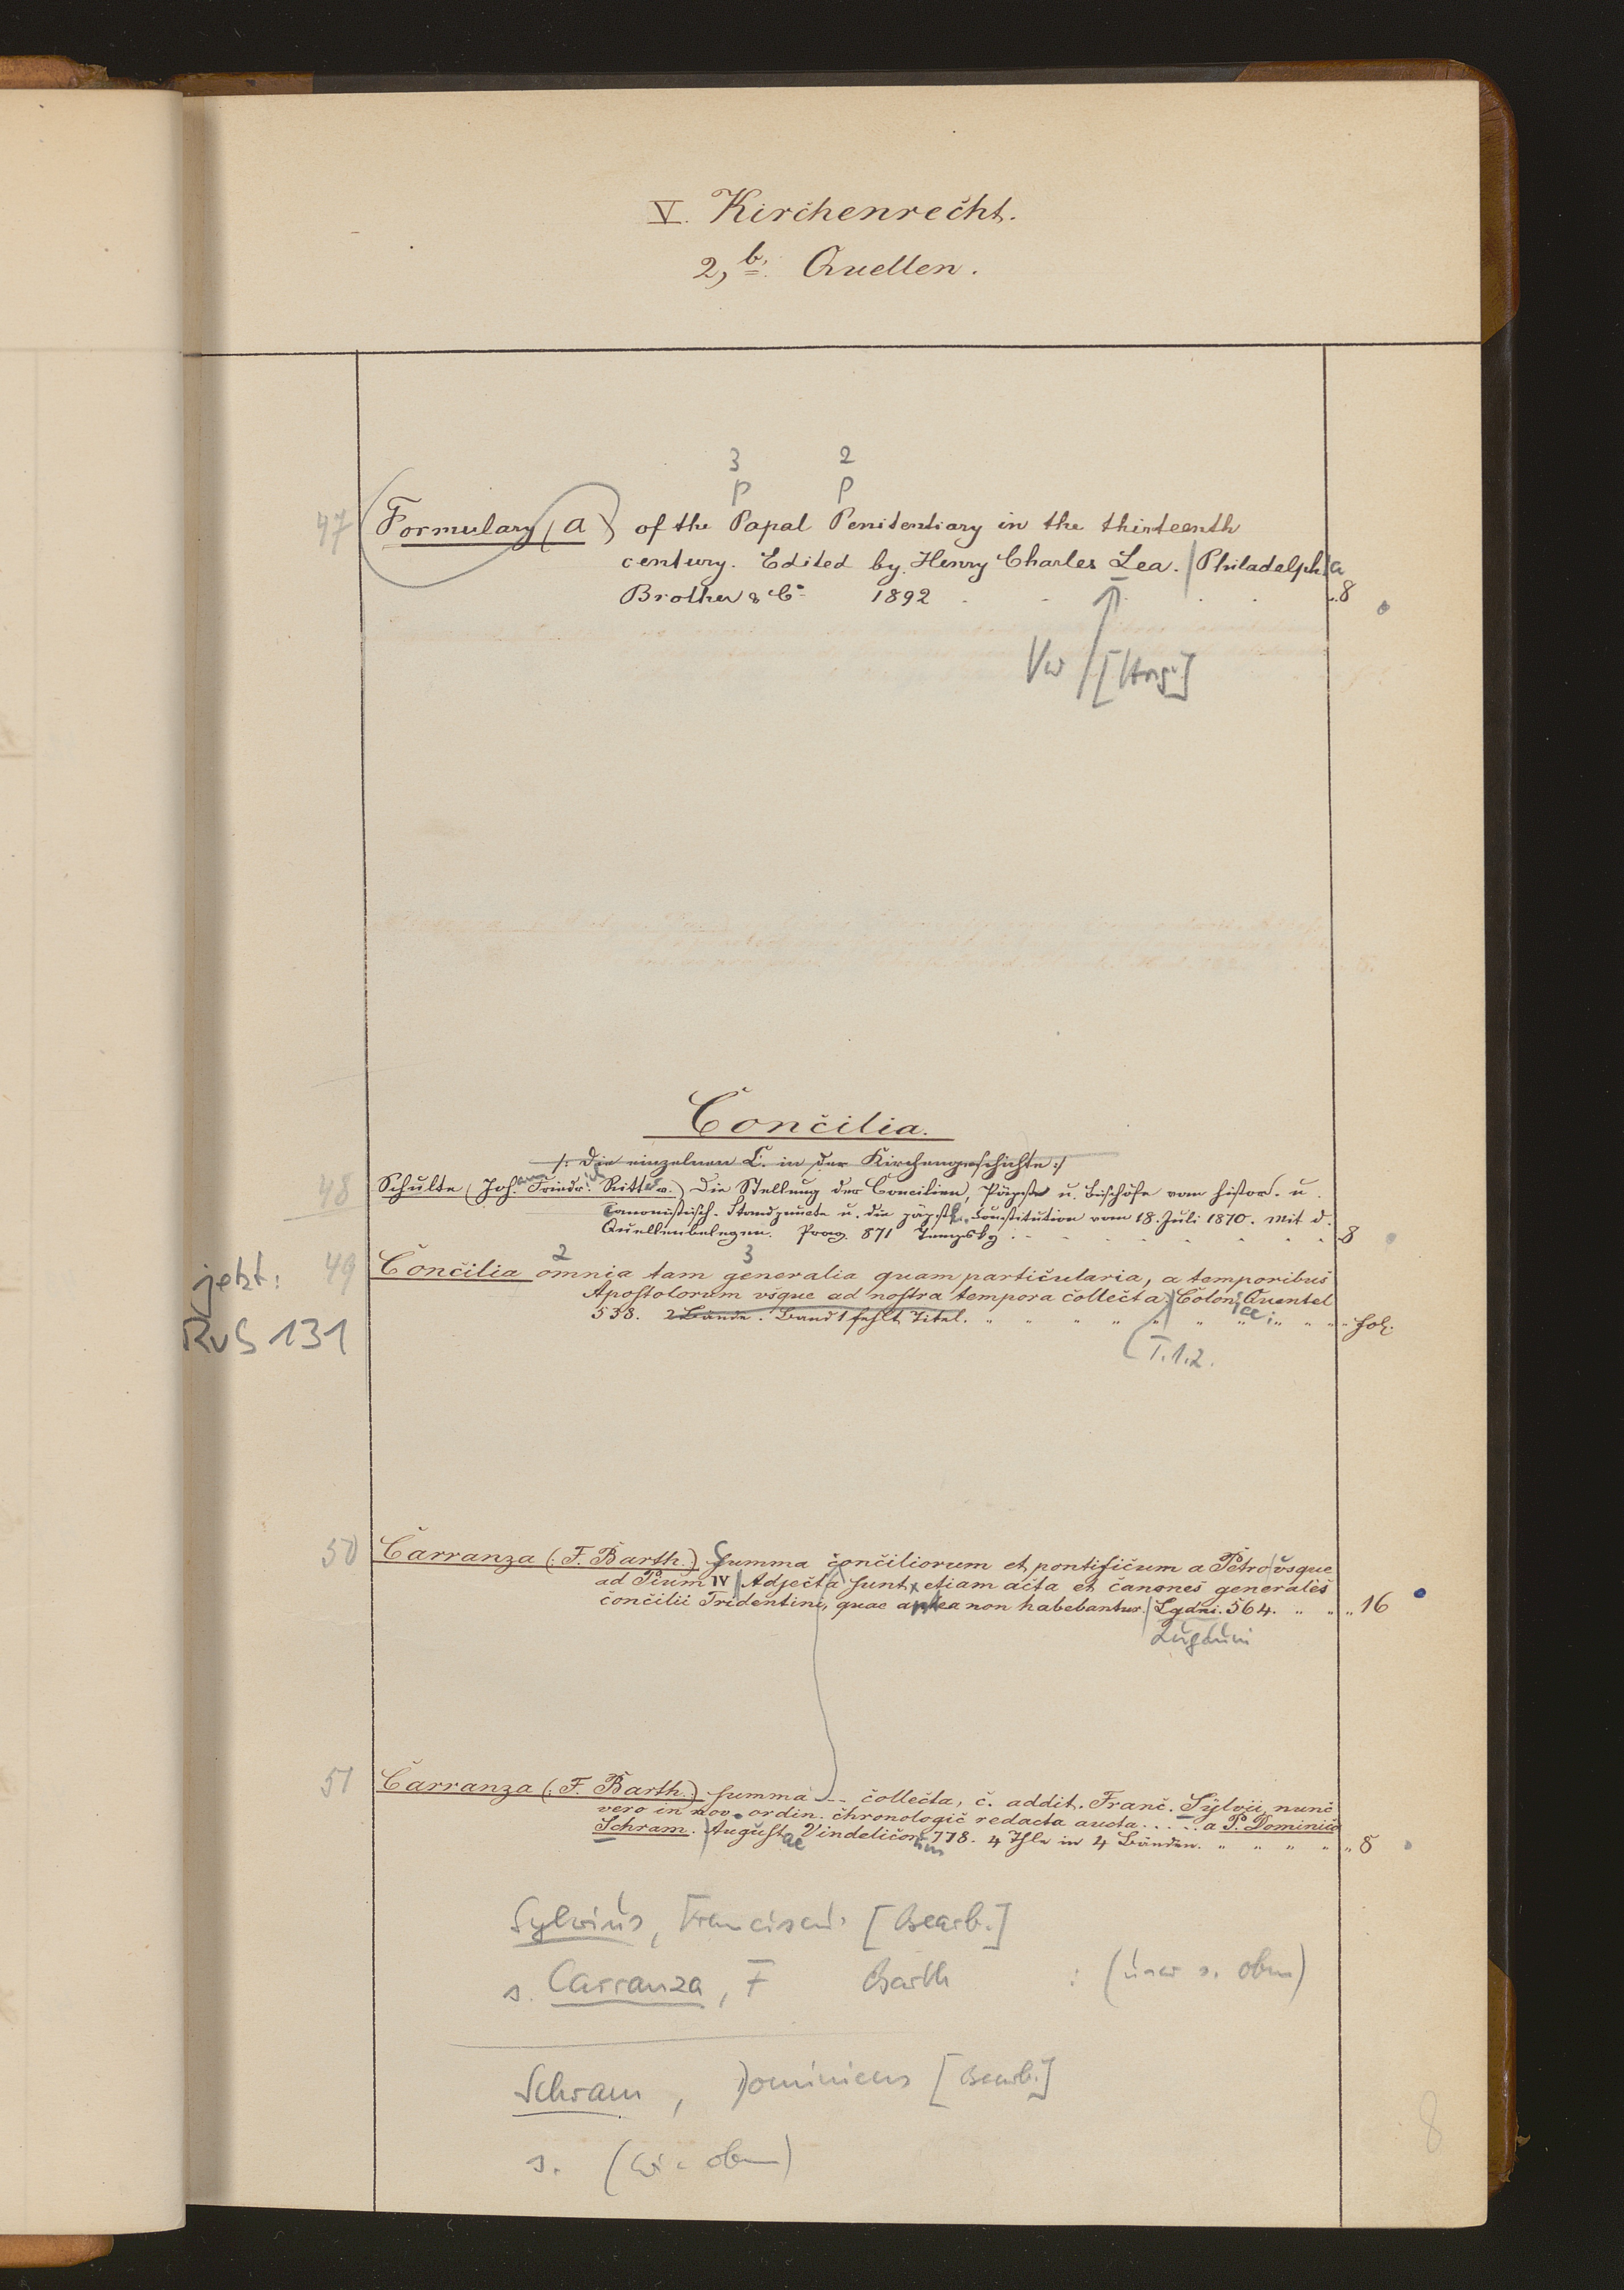 V. Kirchenrecht.
2, b. Quellen.
3 2
p p
47 Formulary (a) of the Papal Penitentiary in the thirteenth
century. Edited by Henry Charles Lea. | Philadelph. a
Brother & Co. 1892 . . . . . 8
Vw [Hrsg.]
Concilia.
/: Die einzelnen C. in der Kirchengeschichte :/
48 Schulte (Joh.ann Friedr.ich Ritter v.) Die Stellung der Concilien, Päpste u. Bischöfe vom histor. u.
canonistisch. Standpuncte u. die päpstl. Constitution vom 18. Juli 1870. Mit d.
Quellenbelegen. Prag. 871 Tempsky . . . . . . . 8
2 3
jetzt: 49 Concilia omnia tam generalia quam particularia, a temporibus
Apostolorum vsque ad nostra tempora collecta. | Coloniae; Quentel
RvS 131 538. 2 Bände. Band 1 fehlt Titel. „ „ „ „ „ „ „ „ „ fol.
(T. 1.2.
50 Carranza (: F. Barth.) Summa conciliorum et pontificum a Petro | vsque
ad Pium IV | Adjecta sunt etiam acta et canones generales
concilii Tridentini, quae antea non habebantur. | Lgdni. 564. „ „ „ 16
Lugduni
51 Carranza (: F. Barth.) summa --- collecta, c. addit. Franc. Sylvii, nunc
vero in nov. ordin. chronologic redacta aucta . . . . . a P. Dominico
Schram. | Augustae Vindelicorum 778. 4 Thle in 4 Bänden. „ „ „ „ „ 8
Sylvius, Franciscus [Bearb.]
s. Carranza, F Barth : (usw s. oben)
Schram, Dominicus [Bearb.]
s. (wie oben)
8